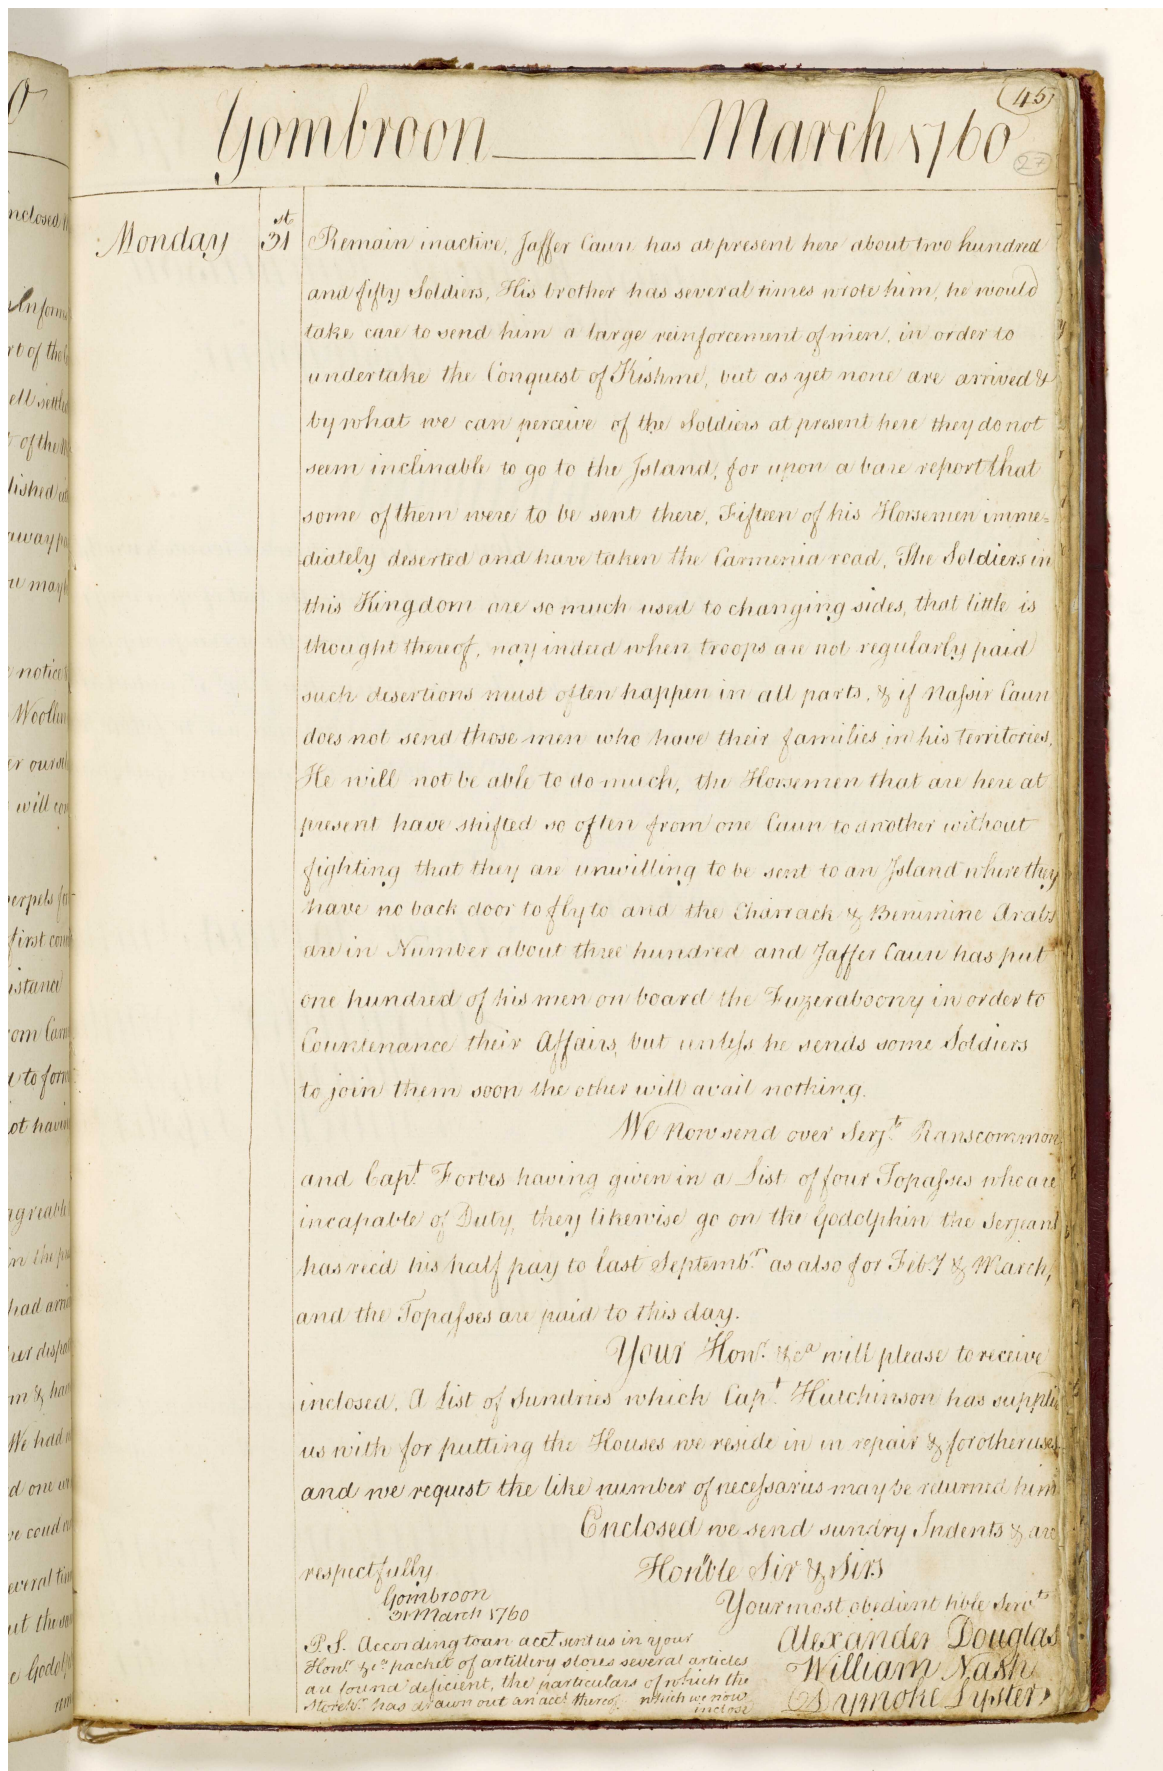 45
Gombroon March 1760
27
Monday 31st Remain inactive, Jaffer Caun has at present here about two hundred
and fifty Soldiers, His brother has several times wrote him, he would
take care to send him a large reinforcement of men, in order to
undertake the Conquest of Kishme, but as yet none are arrived &
by what we can perceive of the Soldiers at present here they do not
seem inclinable to go to the Island, for upon a bare report that
some of them were to be sent there, Fifteen of his Horsemen imme=
diately deserted and have taken the Carmenia road, The Soldiers in
this Kingdom are so much used to changing sides, that little is
thought thereof, nay indeed when troops are not regularly paid
such desertions must often happen in all parts, & if Nassir Caun
does not send those men who have their families in his territories,
He will not be able to do much, the Horsemen that are here at
present have shifted so often from one Caun to another without
fighting that they are unwilling to be sent to an Island where they
have no back door to fly to and the Charrack & Benimine Arabs
are in Number about three hundred and Jaffer Caun has put
one hundred of his men on board the Fuzeraboony in order to
Countenance their Affairs, but unless he sends some Soldiers
to join them soon the other will avail nothing.
We now send over Serjt. Ranscommon
and Capt. Forbes having given in a List of four Topasses who are
incapable of Duty, they likewise go on the Godolphin the Serjeant
has rec'd his half pay to last Septembr. as also for Feb.y & March,
and the Topasses are paid to this day.
Your Honr. &ca will please to receive
inclosed, A List of Sundries which Capt. Hutchinson has supplied
us with for putting the Houses we reside in in repair & for other uses
and we request the like number of necessaries may be returned him
Enclosed we send sundry Indents & are
respectfully Hon'ble Sir & Sirs
Gombroon Your most obedient hble Servts
31 March 1760
P.S. According to an acct. sent us in your Alexander Douglas
Honr. &ca packet of artillery stores several articles William Nash
are found deficient, the particulars of which the Dymoke Lyster
has drawn out an acct. thereof which we now
inclose